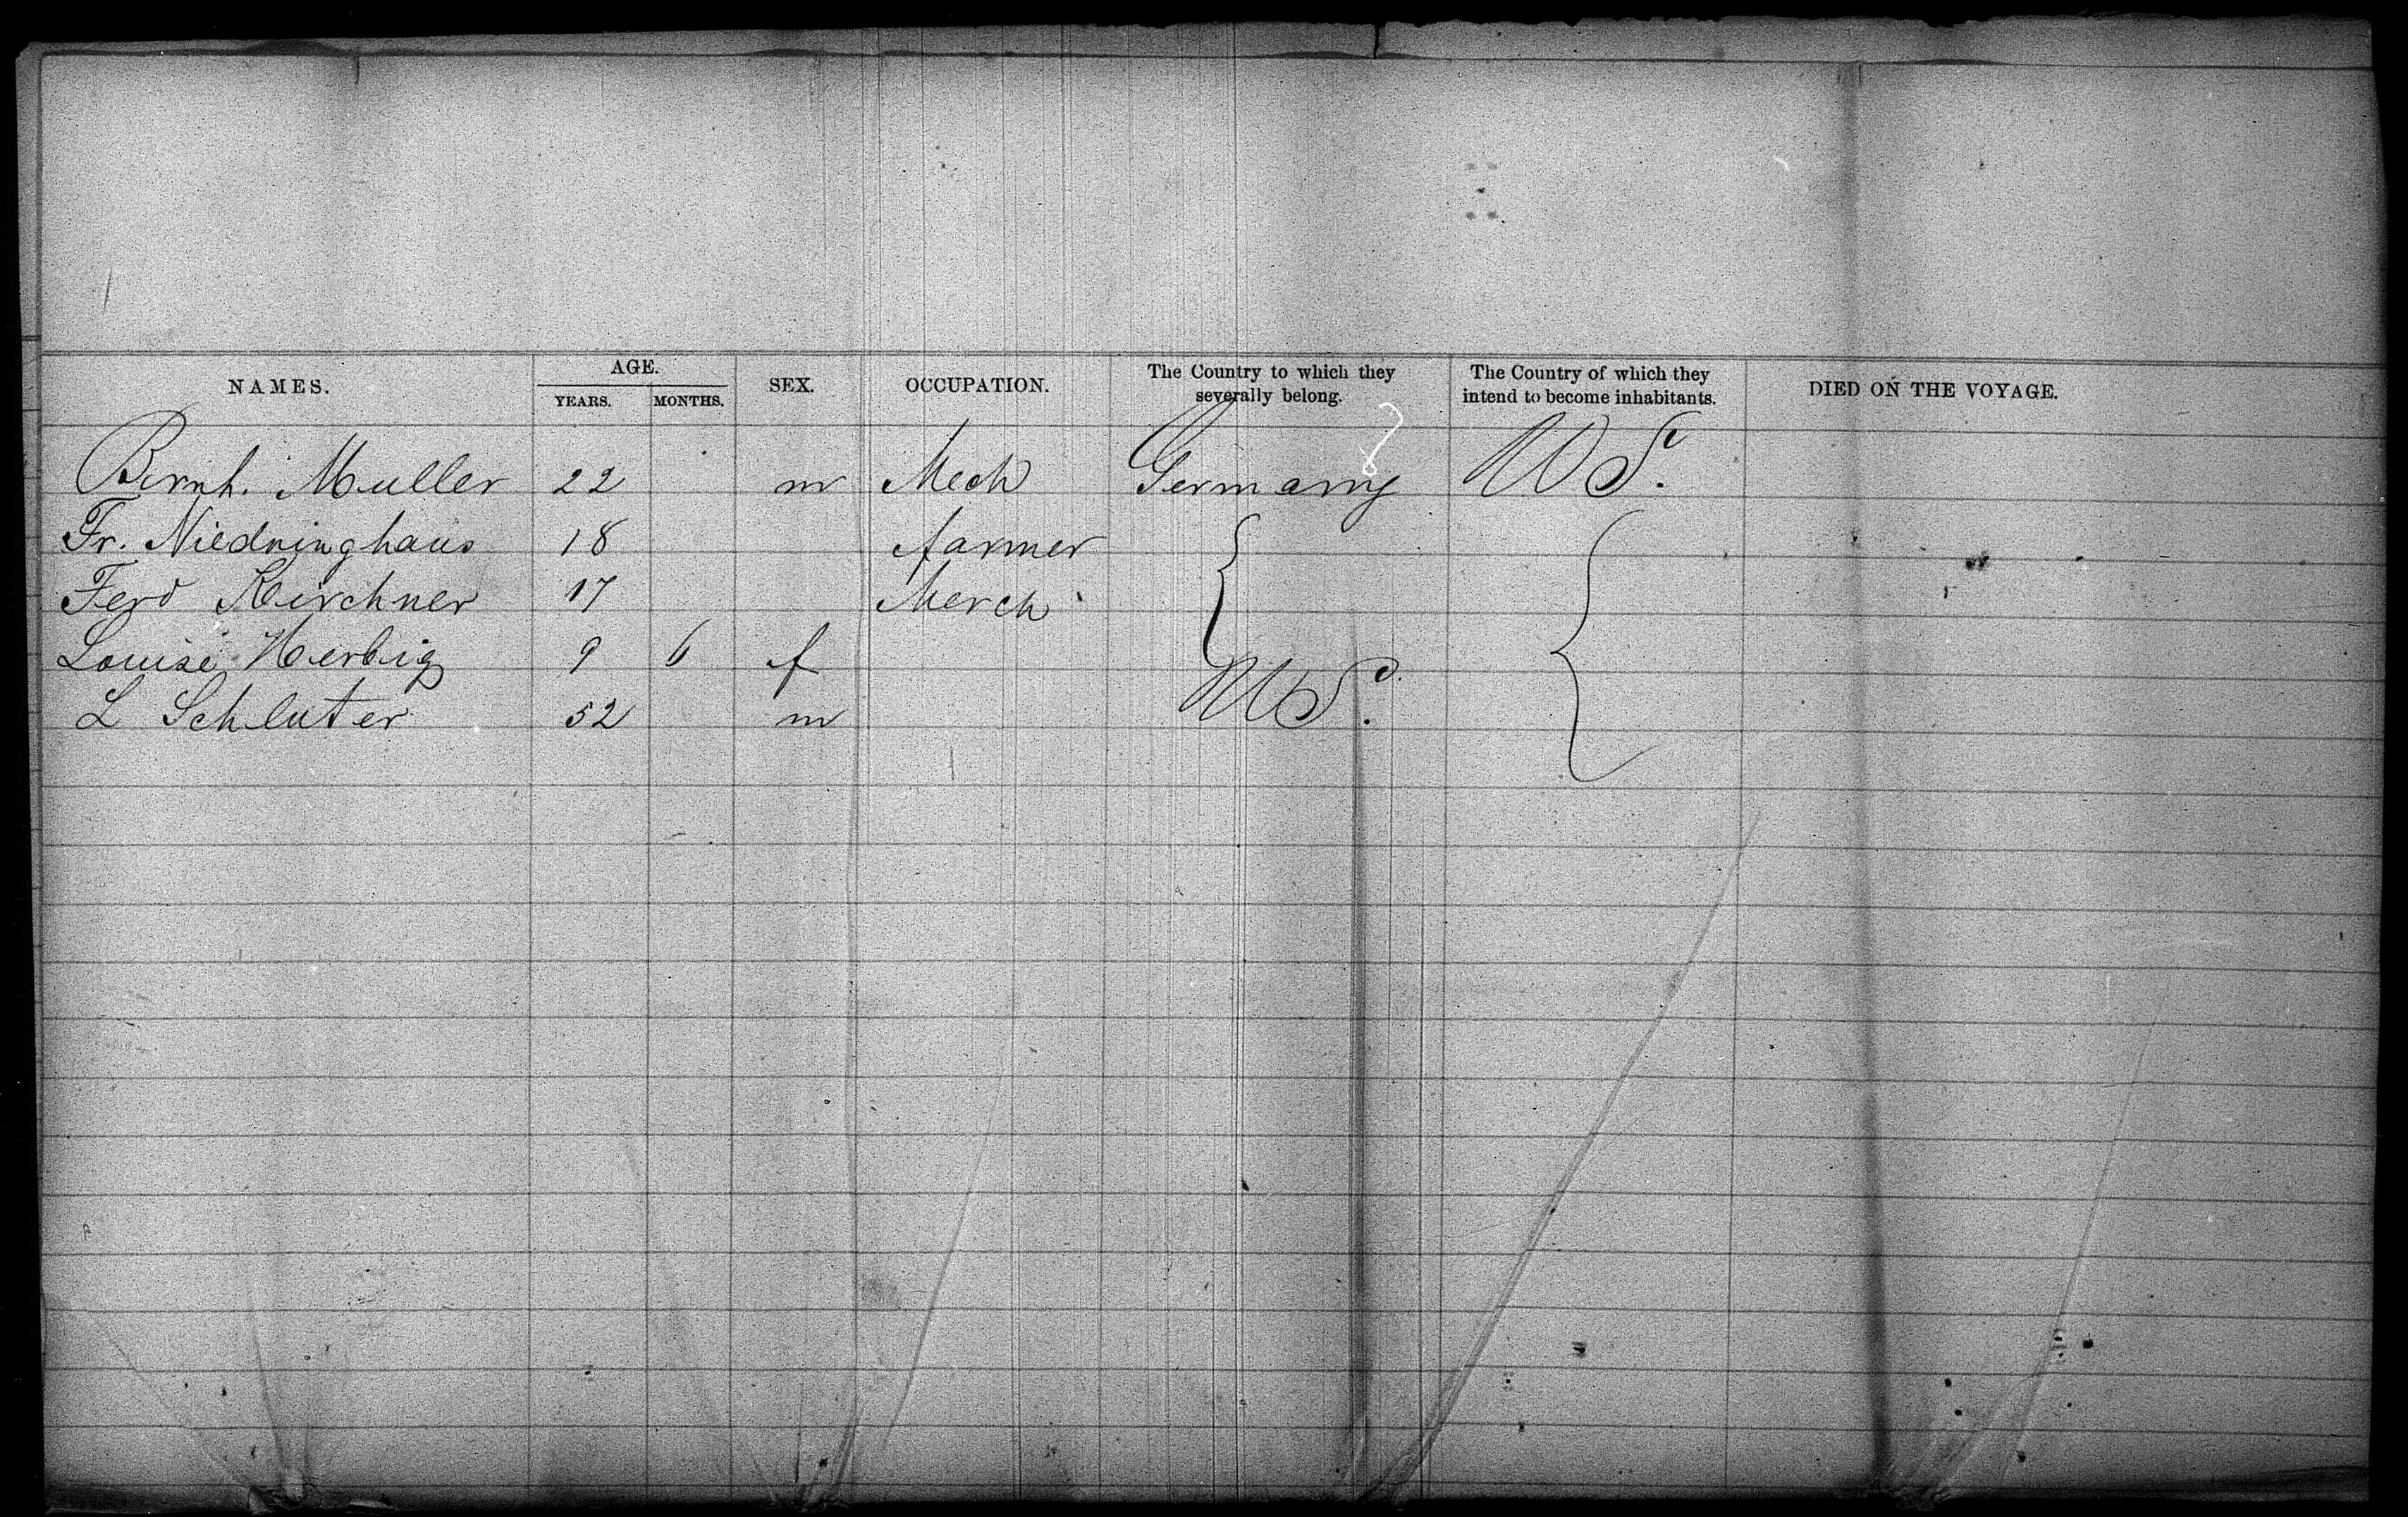 NAMES. AGE. YEARS. MONTHS. SEX. OCCUPATION. The Country to which they severally belong. The Country of which they intend to become inhabitants. DIED ON THE VOYAGE.
Bernh. Muller 22 m Mech Germany US.
Fr. Niedringhaus 18 farmer
Ferd Kirchner 17 Merch
Louise Herbig 9 6 f
L Schluter 52 m US.